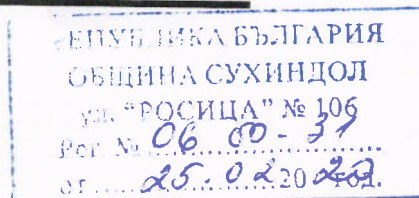 РЕПУБЛИКА БЪЛГАРИЯ
ОБЩИНА СУХИНДОЛ
ул. "РОСИЦА" № 106
Рег. № 06 00-31
от 25.02.20 г.